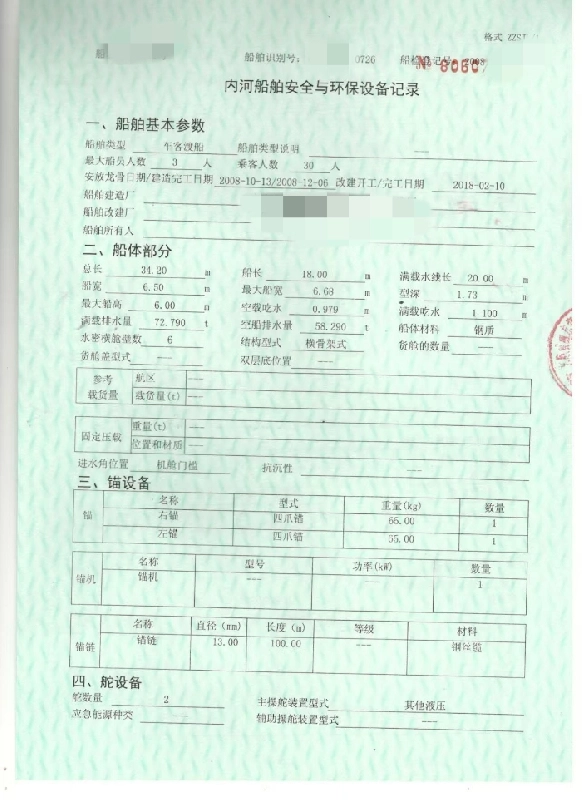 格式 ZZST
船舶识别号: 0726 船检登记号: 2008
№ 80607
内河船舶安全与环保设备记录
一、船舶基本参数
船舶类型 车客渡船 船舶类型说明 ---
最大船员人数 3 人 乘客人数 30 人
安放龙骨日期/建造完工日期 2008-10-13/2008-12-06 改建开工/完工日期 2018-02-10
船舶建造厂
船舶改建厂
船舶所有人
二、船体部分
总长 34.20 m 船长 18.00 m 满载水线长 20.00 m
船宽 6.50 m 最大船宽 6.68 m 型深 1.73 m
最大船高 6.00 m 空载吃水 0.979 m 满载吃水 1.100 m
满载排水量 72.790 t 空船排水量 58.290 t 船体材料 钢质
水密横舱壁数 6 结构型式 横骨架式 货舱的数量 ---
货舱盖型式 --- 双层底位置 ---
参考载货量 航区 ---
载货量(t) ---
固定压载 重量(t) ---
位置和材质 ---
进水角位置 机舱门槛 抗沉性 ---
三、锚设备
锚 名称 型式 重量(kg) 数量
右锚 四爪锚 65.00 1
左锚 四爪锚 55.00 1
锚机 名称 型号 功率(kW) 数量
锚机 --- 1
锚链 名称 直径(mm) 长度(m) 等级 材料
锚链 13.00 100.00 --- 钢丝缆
四、舵设备
舵数量 2 主操舵装置型式 其他液压
应急能源种类 辅助操舵装置型式 ---